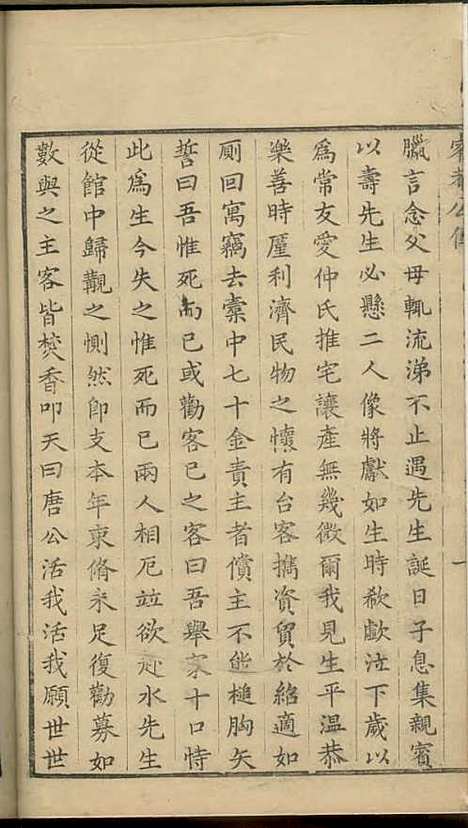 臘言念父母輒流涕不止遇先生誕日子息集親賓
以壽先生必懸二人像將獻如生時欷歔泣下歲以
爲常友愛仲氏推宅讓產無幾微爾我見生平溫恭
樂善時廑利濟民物之懷有台客攜資貿於紹適如
厠回寓竊去橐中七十金責主者償主不能槌胸矢
誓曰吾惟死而已或勸客已之客曰吾舉家十口恃
此爲生今失之惟死而已兩人相厄竝欲赴水先生
從館中歸覯之惻然卽支本年束脩未足復勸募如
數與之主客皆焚香叩天曰唐公活我活我願世世